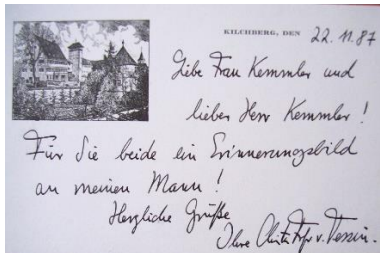 KILCHBERG, DEN 22.11.87
Liebe Frau Kemmler und
lieber Herr Kemmler!
Für Sie beide ein Erinnerungsbild
an meinen Mann!
Herzliche Grüße
Ihre v. Tessin.